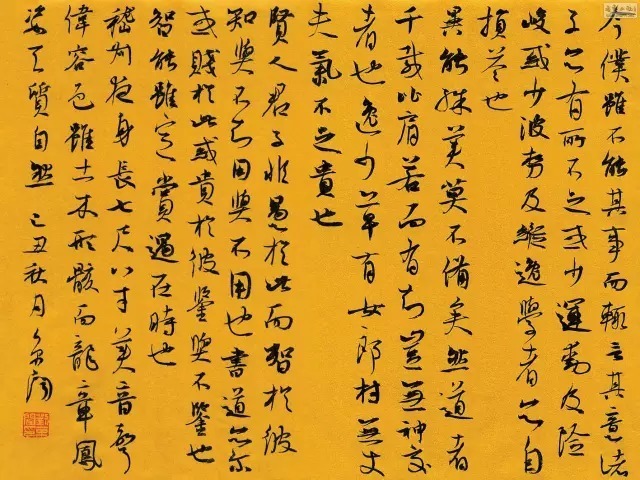 今僕雖不能其事而輒言其意諸
子亦有所不足或少運動及險
峻或少波勢及縱逸學者亦自
損益也
異能殊美莫不備矣然道者
千載比肩若面有知豈無神交
者也逸少草有女郎材無丈
夫氣不足貴也
賢人君子非愚於此而智於彼
知與不知用與不用也書道亦爾
或賤於此或貴於彼鑒與不鑒也
智能雖定賞遇在時也
嵇叔夜身長七尺八寸美音聲
偉容色雖土木形骸而龍章鳳
姿天質自然 己丑秋月